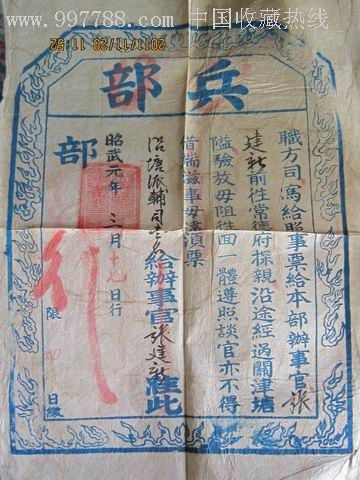 www.997788.com 中国收藏热线
2011/11/20 11:52
兵部
職方司為給照事票給本部辦事官張
建新前往常德府探親沿途經過關津塘
隘驗放毋阻往面一體遵照該官亦不得
借端滋事毋違須票
沿塘派輔司 給辦事官張建新准此
昭武元年三月十九日行
部
行
限
日繳